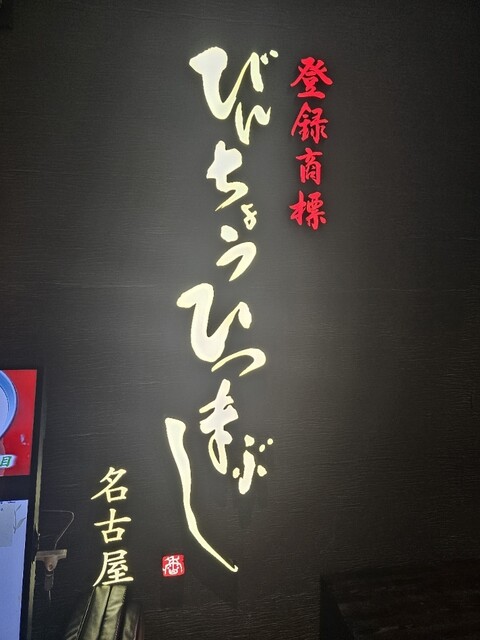 登録商標
びんちょうひつまぶし
名古屋